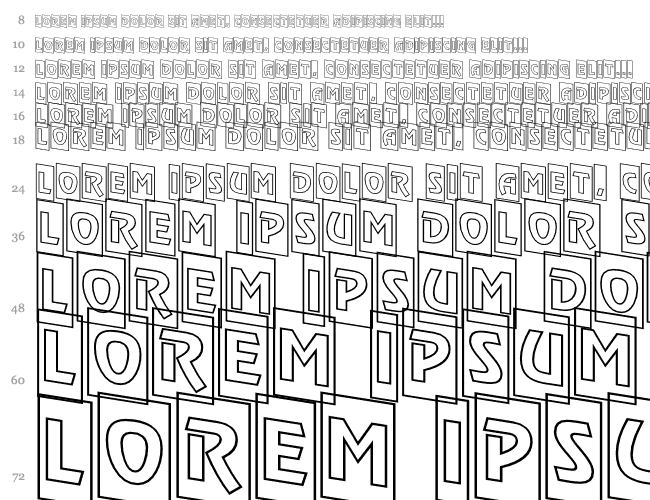 8 LOREM IPSUM DOLOR SIT AMET, CONSECTETUER ADIPISCING ELIT...
10 LOREM IPSUM DOLOR SIT AMET, CONSECTETUER ADIPISCING ELIT...
12 LOREM IPSUM DOLOR SIT AMET, CONSECTETUER ADIPISCING ELIT...
14 LOREM IPSUM DOLOR SIT AMET, CONSECTETUER ADIPISCI
16 LOREM IPSUM DOLOR SIT AMET, CONSECTETUER ADI
18 LOREM IPSUM DOLOR SIT AMET, CONSECTETU
24 LOREM IPSUM DOLOR SIT AMET, CO
36 LOREM IPSUM DOLOR S
48 LOREM IPSUM DO
60 LOREM IPSUM
72 LOREM IPSU